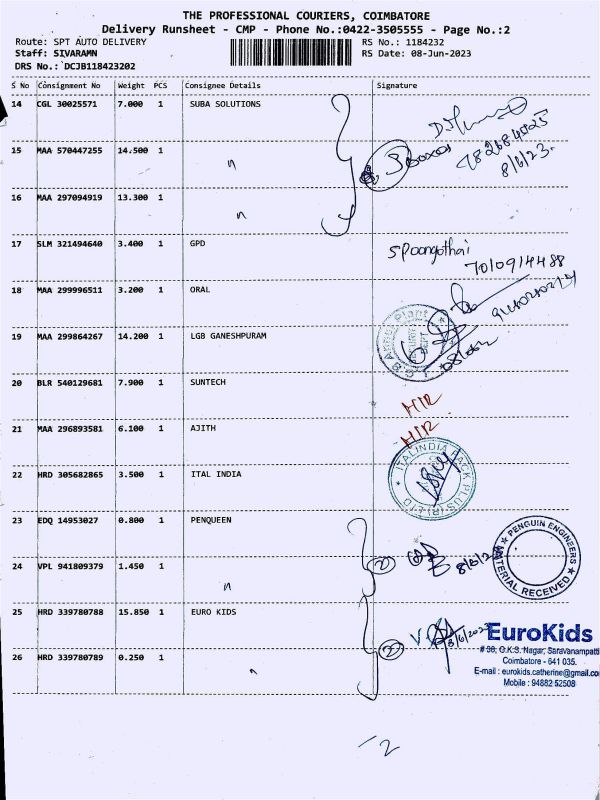 THE PROFESSIONAL COURIERS, COIMBATORE
Delivery Runsheet - CMP - Phone No.:0422-3505555 - Page No.:2
Route: SPT AUTO DELIVERY
RS No.: 1184232
Staff: SIVARAMN
RS Date: 08-Jun-2023
DRS No.: DCJB118423202
S No Consignment No Weight PCS Consignee Details Signature
14 CGL 30025571 7.000 1 SUBA SOLUTIONS
15 MAA 570447255 14.500 1 "
8/6/23.
16 MAA 297094919 13.300 1 "
17 SLM 321494640 3.400 1 GPD
Spoongothai
7010914488
18 MAA 299996511 3.200 1 ORAL
19 MAA 299864267 14.200 1 LGB GANESHPURAM
20 BLR 540129681 7.900 1 SUNTECH
HIR
21 MAA 296893581 6.100 1 AJITH
HIR
22 HRD 305682865 3.500 1 ITAL INDIA
ITALINDIA PACK PLUS (P) LTD
23 EDQ 14953027 0.800 1 PENQUEEN
PENGUIN ENGINEERS
MATERIAL RECEIVED
24 VPL 941809379 1.450 1 "
2
25 HRD 339780788 15.850 1 EURO KIDS
8/6/2023
EuroKids
# 38, G.K.S. Nagar, Saravanampatti
Coimbatore - 641 035.
E-mail : eurokids.catherine@gmail.co
Mobile : 94882 52508
26 HRD 339780789 0.250 1 "
2
-2